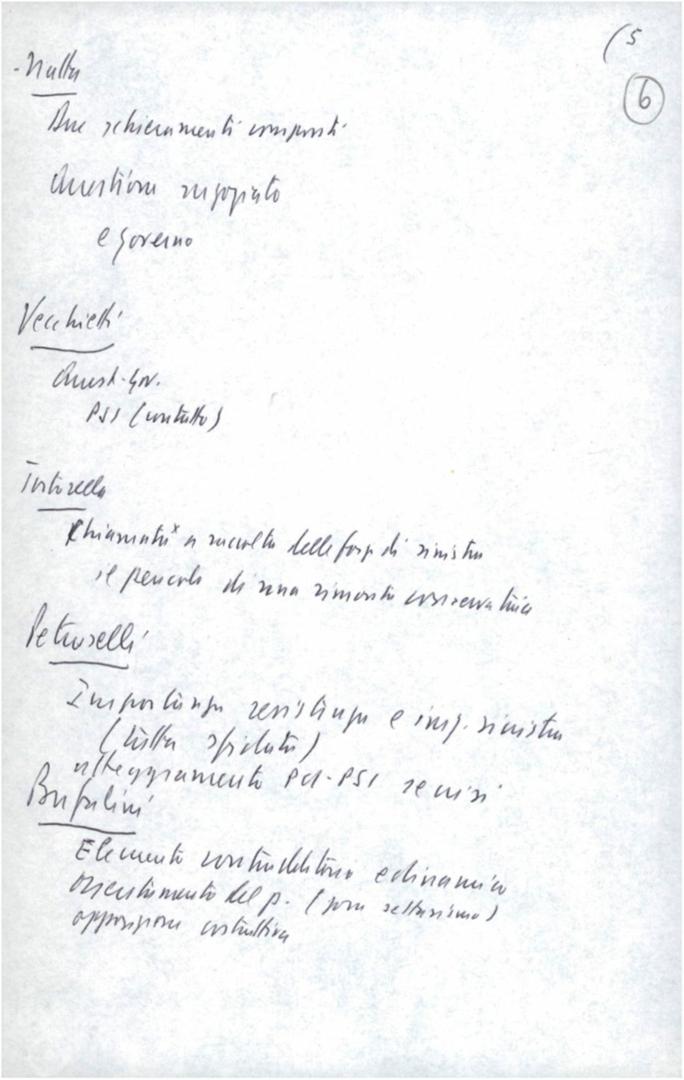 (5
6
- Natta
Due schieramenti composti
Questione
e governo
Vecchietti
Quest. gov.
PSI (contatto)
Tortorella
Chiamata a raccolta delle forze di sinistra
il pericolo di una rimonta conservatrice
Petroselli
Importanza resistenza e sinistra
(tutta sfidata)
atteggiamento PCI-PSI
Bufalini
Elemento contraddittorio e dinamico
orientamento del p. (settarismo)
opposizione costruttiva